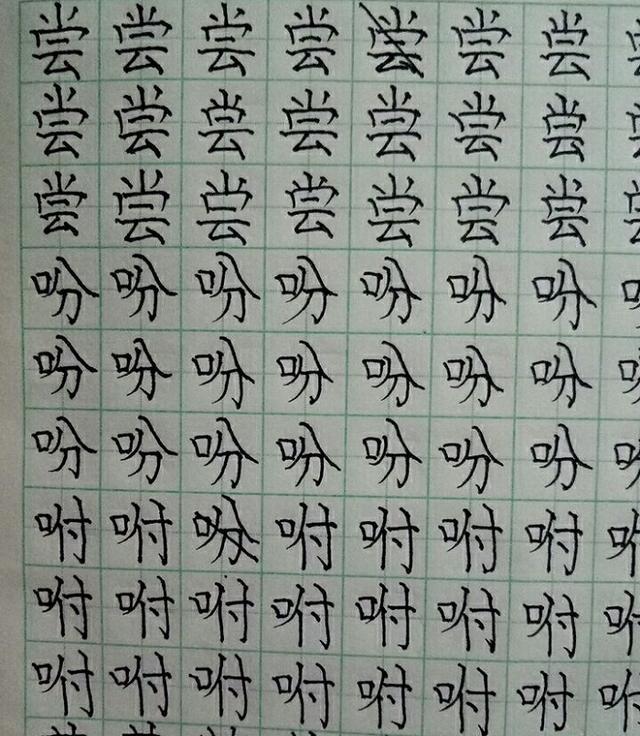 尝尝尝尝尝尝尝
尝尝尝尝尝尝尝
尝尝尝尝尝尝尝
吩吩吩吩吩吩吩
吩吩吩吩吩吩吩
吩吩吩吩吩吩吩
咐咐吩咐咐咐咐
咐咐咐咐咐咐咐
咐咐咐咐咐咐咐